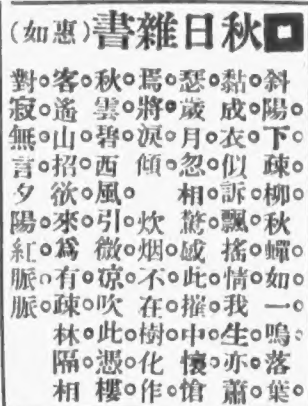 秋日雜書(惠如)
斜陽下疎柳秋蟬如一嗚落葉
黏成衣似訴飄搖情我生亦蕭
瑟歲月忽相驚感此摧中懷愴
焉將淚傾　炊烟不在樹化作
秋雲碧西風引微凉吹此憑樓
客遙山招欲來爲有疎林隔相
對寂無言夕陽紅脈脈